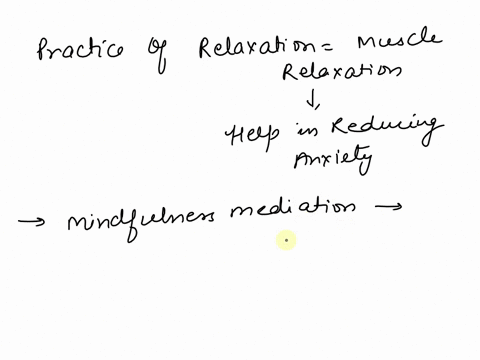 Practice of Relaxation = Muscle
Relaxation
↓
Help in Reducing
Anxiety
→ mindfulness mediation →